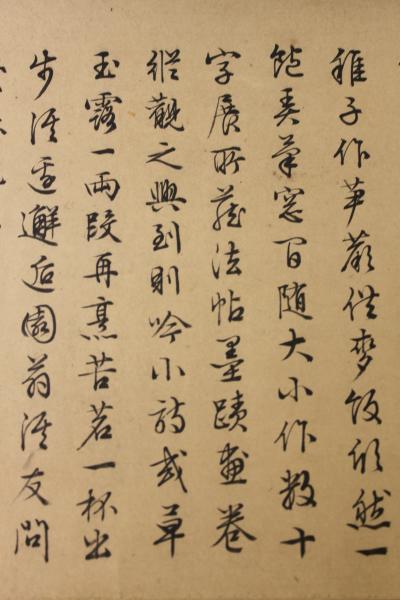 稚子作笋蕨供麥飯欣然一
飽弄筆窓間随大小作數十
字展所藏法帖墨蹟畫卷
縱觀之興到則吟小詩或草
玉露一兩段再烹苦茗一杯出
步溪邊邂逅園翁溪友問